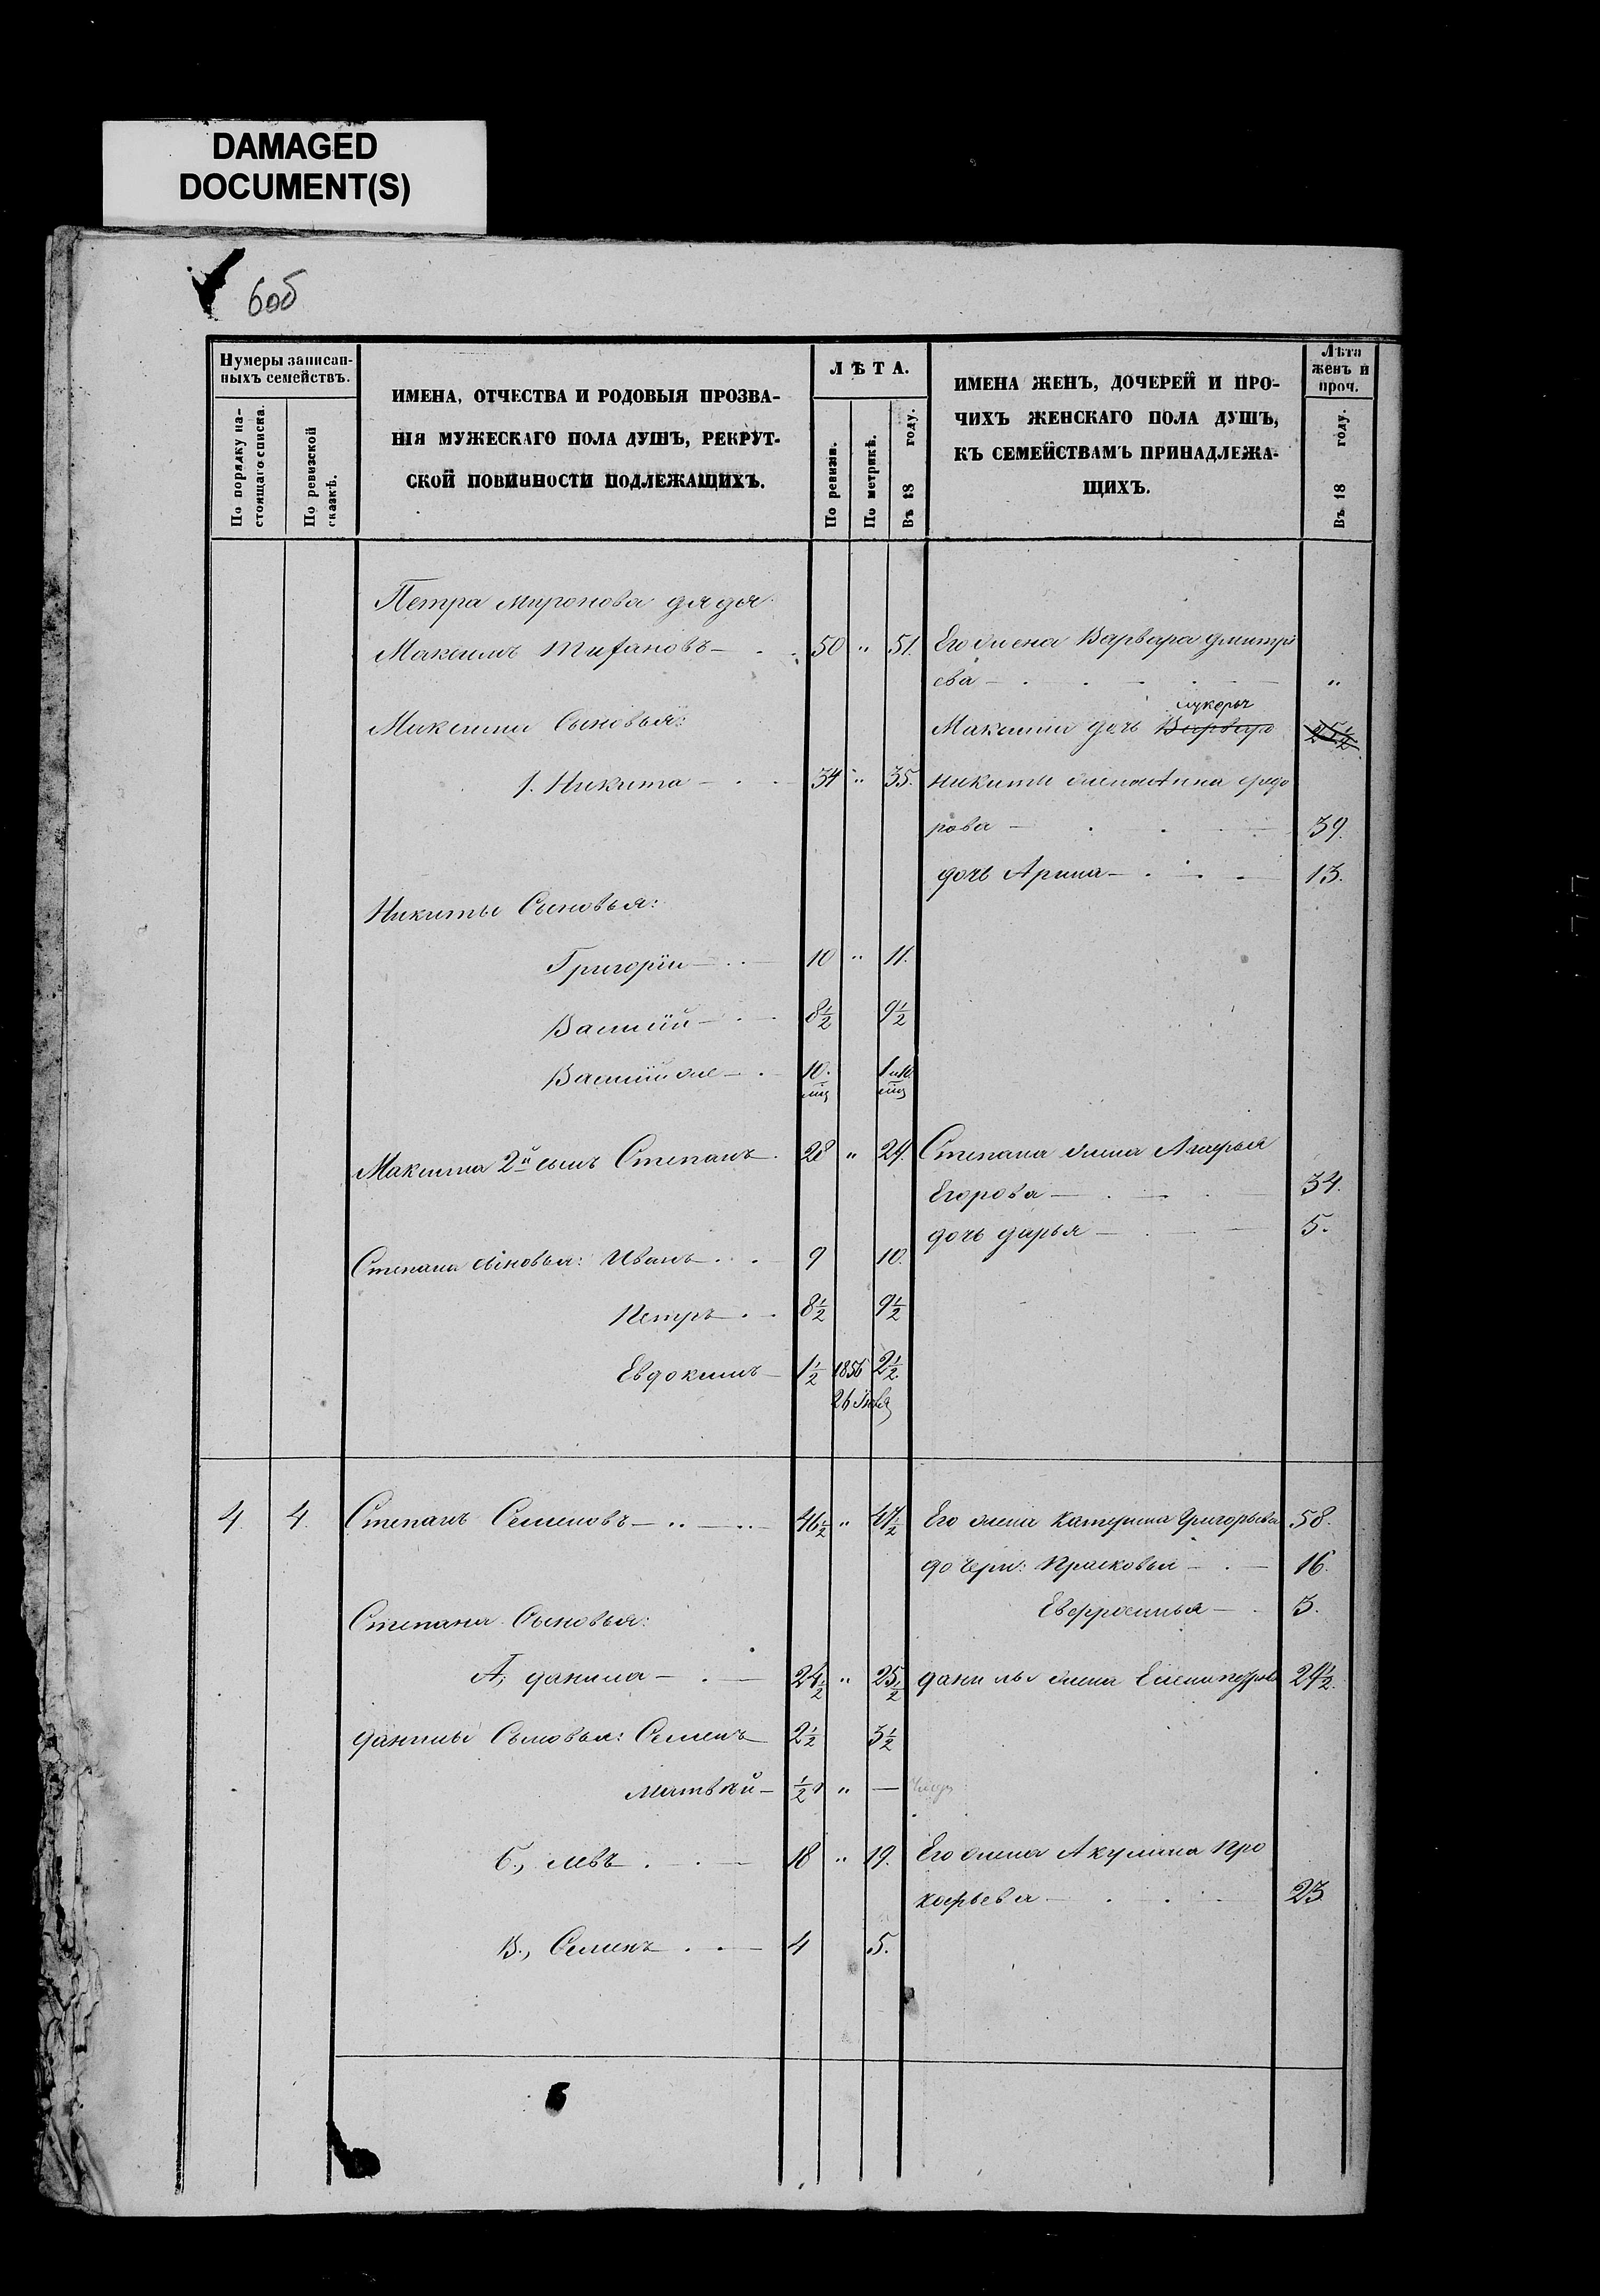 DAMAGED
DOCUMENT(S)
6об
Нумеры записан-
ныхъ семействъ.
По порядку на-
стоящаго списка.
По ревизской
сказкѣ.
ИМЕНА, ОТЧЕСТВА И РОДОВЫЯ ПРОЗВА-
НІЯ МУЖЕСКАГО ПОЛА ДУШЪ, РЕКРУТ-
СКОЙ ПОВИННОСТИ ПОДЛЕЖАЩИХЪ.
ЛѢТА.
По ревизіи.
По метрикѣ.
Въ 18 году.
ИМЕНА ЖЕНЪ, ДОЧЕРЕЙ И ПРО-
ЧИХЪ ЖЕНСКАГО ПОЛА ДУШЪ,
КЪ СЕМЕЙСТВАМЪ ПРИНАДЛЕЖА-
ЩИХЪ.
Лѣта
женъ и
проч.
Въ 18 году.
Петра Миронова дядя
Максимъ — 50 " 51. Его жена Варвара Дмитрі
ева — "
Максима Сыновья: Максима дочь Варвара 25½
1. Никита — 34 " 35. Никиты жена Ѳедо
рова — 39.
дочь Арина — 13.
Никиты Сыновья:
Григорій — 10 " 11.
Василій — 8½ 9½
Василій же — 10. мц 1 и 10. мц
Максима 2й сынъ Степанъ. 28 " 29. Степана жена Агафья
Егорова — 34.
дочь Дарья — 5.
Степана сыновья: Иванъ 9 10.
Петръ 8½ 9½
Евдокимъ — 1½ 1856 2½
26
4 4. Степанъ Семеновъ — 46½ " 47½ Его жена Катерина Григорьева 58.
дочери: Прасковья — 16.
Евфросинья — 3.
Степана Сыновья:
А, Данила — 24½ " 25½ Данилы жена Елена 24½.
Данилы Сыновья: Семенъ 2½ 3½
Матвѣй — ½ " —
Б., Левъ 18 " 19. Его жена Акулина Про
кофьева — 23
В., Семенъ 4 5.